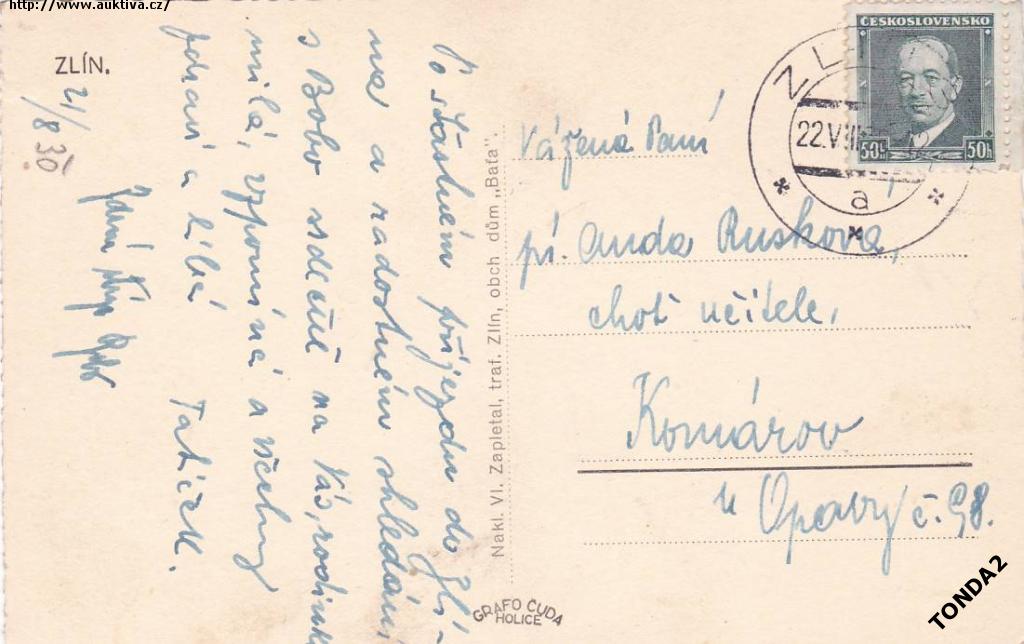 http://www.auktiva.cz/
ZLÍN.
21/8 36
Po šťastném příjezdu do Zlí-
na a radostném shledání
s Bobo srdečně na Vás, rodinko
milá, vzpomíná a všechny
zdraví a líbá
Tatíček.
Nakl. Vl. Zapletal, traf. Zlín, obch dům „Baťa".
GRAFO ČUDA
HOLICE
ČESKOSLOVENSKO
50h 50h
ZL
22.VII
a
Vážená Paní
pí. Anda Rusková,
choť učitele,
Komárov
u Opavy č. 98.
TONDA2